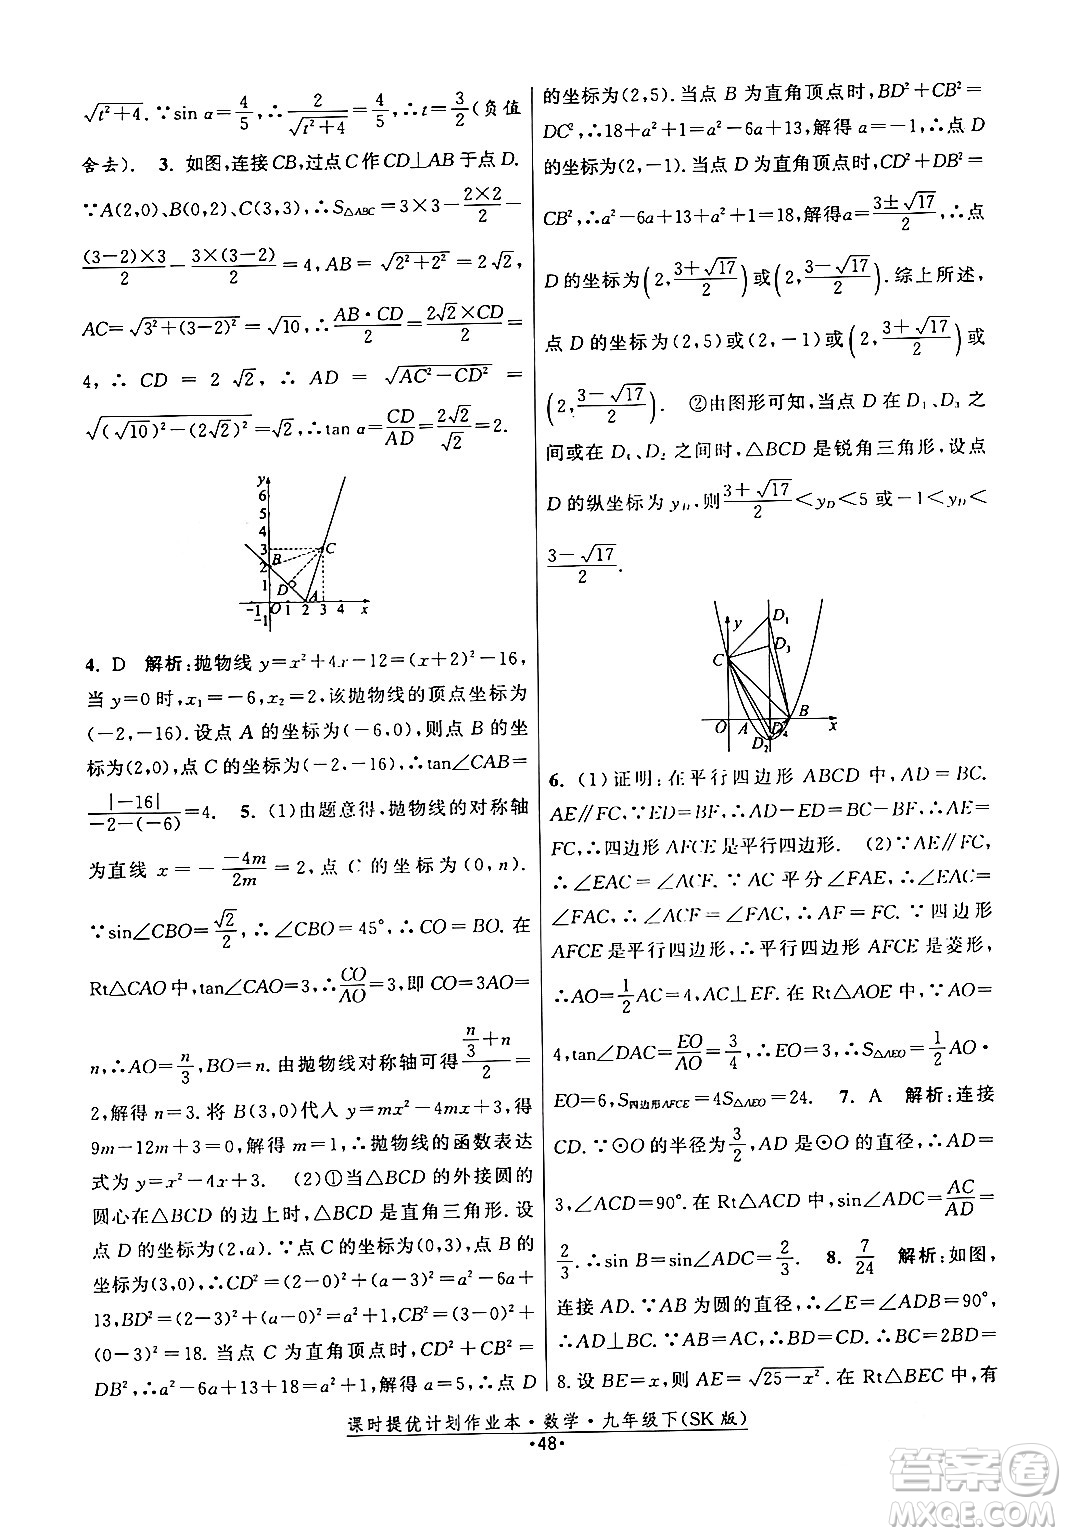 √(t²+4). ∵sin α=4/5, ∴2/√(t²+4)=4/5, ∴t=3/2(负值
舍去). 3. 如图,连接CB,过点C作CD⊥AB于点D.
∵A(2,0)、B(0,2)、C(3,3), ∴S△ABC=3×3−(2×2)/2−
((3−2)×3)/2−(3×(3−2))/2=4, AB=√(2²+2²)=2√2,
AC=√(3²+(3−2)²)=√10, ∴(AB·CD)/2=(2√2×CD)/2=
4, ∴ CD = 2√2, ∴ AD = √(AC²−CD²) =
√((√10)²−(2√2)²)=√2, ∴tan α=CD/AD=2√2/√2=2.
y
6
5
4
3
2
1
B
C
D
A
−1 O 1 2 3 4 x
−1
4. D 解析:抛物线 y=x²+4x−12=(x+2)²−16,
当 y=0 时,x₁=−6,x₂=2,该抛物线的顶点坐标为
(−2,−16).设点 A 的坐标为(−6,0),则点 B 的坐
标为(2,0),点 C 的坐标为(−2,−16), ∴tan∠CAB=
|−16|/(−2−(−6))=4. 5. (1)由题意得,抛物线的对称轴
为直线 x = −(−4m)/(2m) = 2,点 C 的坐标为(0,n).
∵sin∠CBO=√2/2, ∴∠CBO=45°, ∴CO=BO.在
Rt△CAO中,tan∠CAO=3, ∴CO/AO=3,即 CO=3AO=
n, ∴AO=n/3,BO=n.由抛物线对称轴可得(n/3+n)/2=
2,解得 n=3.将 B(3,0)代入 y=mx²−4mx+3,得
9m−12m+3=0,解得 m=1, ∴抛物线的函数表达
式为 y=x²−4x+3. (2)①当△BCD的外接圆的
圆心在△BCD的边上时,△BCD是直角三角形.设
点 D 的坐标为(2,a). ∵点 C 的坐标为(0,3),点 B 的
坐标为(3,0), ∴CD²=(2−0)²+(a−3)²=a²−6a+
13,BD²=(2−3)²+(a−0)²=a²+1,BC²=(3−0)²+
(0−3)²=18.当点 C 为直角顶点时,CD²+BC²=
DB², ∴a²−6a+13+18=a²+1,解得 a=5, ∴点 D
的坐标为(2,5).当点 B 为直角顶点时,BD²+CB²=
DC², ∴18+a²+1=a²−6a+13,解得 a=−1, ∴点 D
的坐标为(2,−1).当点 D 为直角顶点时,CD²+DB²=
CB², ∴a²−6a+13+a²+1=18,解得a=(3±√17)/2, ∴点
D的坐标为(2,(3+√17)/2)或(2,(3−√17)/2).综上所述,
点 D 的坐标为(2,5)或(2,−1)或(2,(3+√17)/2)或
(2,(3−√17)/2). ②由图形可知,当点 D 在 D₁、D₃ 之
间或在 D₄、D₂ 之间时,△BCD是锐角三角形,设点
D的纵坐标为 y_D,则(3+√17)/2<y_D<5 或−1<y_D<
(3−√17)/2.
y
D₁
D₃
C
O A
B
x
D₂
D₄
6. (1)证明:在平行四边形 ABCD 中,AD=BC.
AE∥FC. ∵ED=BF, ∴AD−ED=BC−BF, ∴AE=
FC, ∴四边形 AFCE 是平行四边形. (2)∵AE∥FC,
∴∠EAC=∠ACF. ∵AC 平分∠FAE, ∴∠EAC=
∠FAC, ∴∠ACF=∠FAC, ∴AF=FC. ∵四边形
AFCE是平行四边形, ∴平行四边形 AFCE是菱形,
∴AO=1/2AC=4,AC⊥EF.在 Rt△AOE 中, ∵AO=
4,tan∠DAC=EO/AO=3/4, ∴EO=3, ∴S△AEO=1/2AO·
EO=6,S四边形AFCE=4S△AEO=24. 7. A 解析:连接
CD. ∵⊙O的半径为3/2,AD是⊙O的直径, ∴AD=
3,∠ACD=90°.在 Rt△ACD 中,sin∠ADC=AC/AD=
2/3. ∴sin B=sin∠ADC=2/3. 8. 7/24 解析:如图,
连接 AD. ∵AB 为圆的直径, ∴∠E=∠ADB=90°,
∴AD⊥BC. ∵AB=AC, ∴BD=CD, ∴BC=2BD=
8.设 BE=x,则 AE=√(25−x²).在 Rt△BEC 中,有
课时提优计划作业本·数学·九年级下(SK版)
·48·
答案圈
MXQE.COM